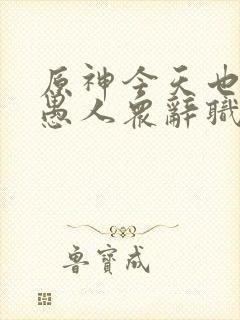 原神今天也
愚人眾辭職
魯寶成